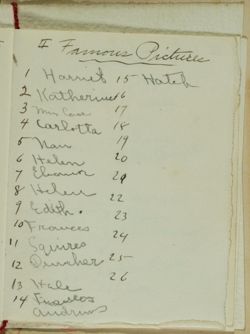 II Famous Pictures
1 Harriet 15 Hatch
2 Katherine 16
3 Mrs Case 17
4 Carlotta 18
5 Nan 19
6 Helen 20
7 Eleanor 21
8 Helen 22
9 Edith. 23
10 Frances 24
11 Squires
12 25
13 Hale 26
14 Frances
Andrews